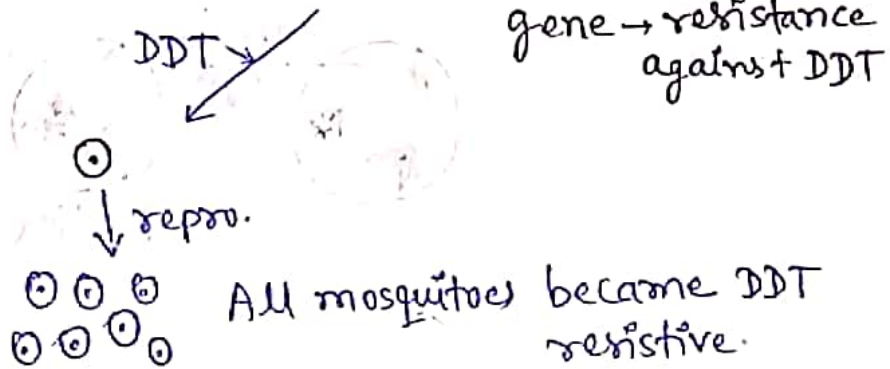 gene → resistance
against DDT
DDT
repro.
All mosquitoes became DDT
resistive.